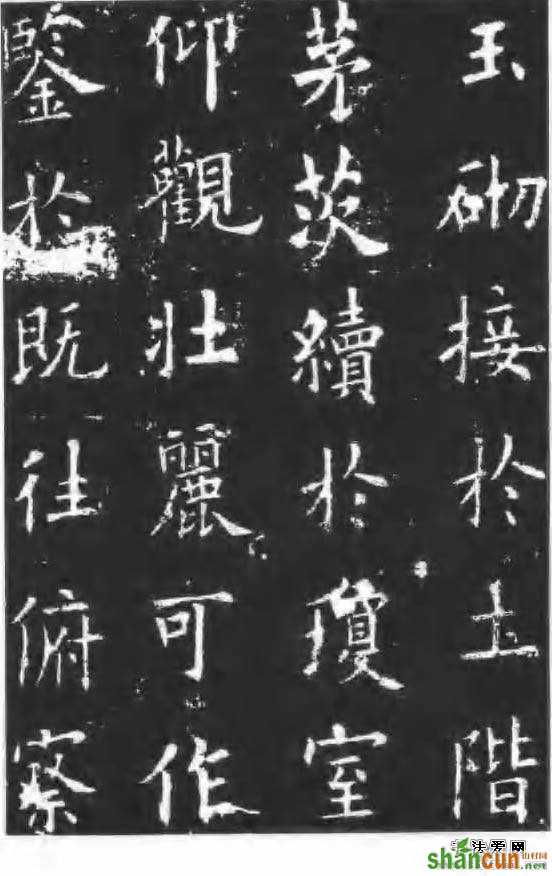 玉砌接於土階
茅茨續於瓊室
仰觀壯麗可作
鑒於既往俯察
法爱网
shancun
.net